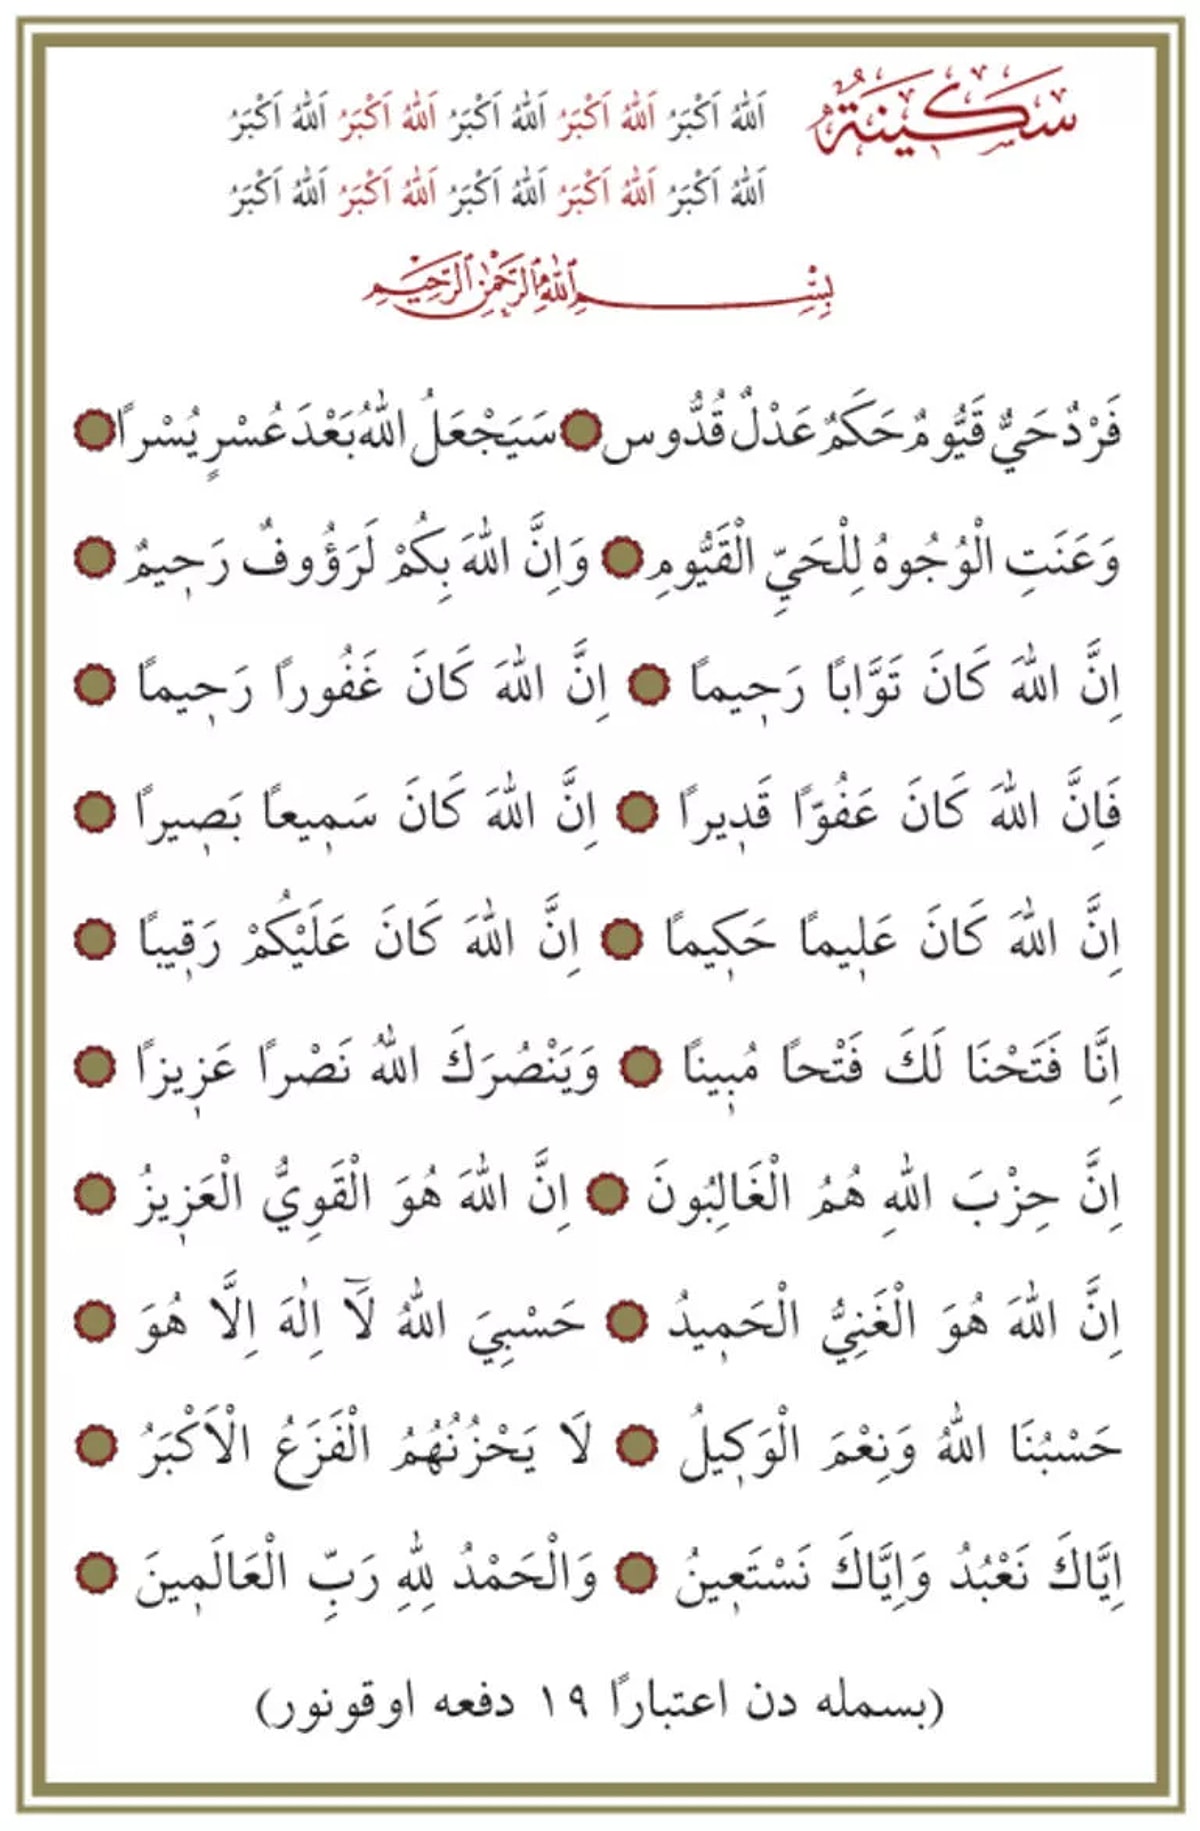 سَكِينَةٌ
اَللّٰهُ اَكْبَرُ اَللّٰهُ اَكْبَرُ اَللّٰهُ اَكْبَرُ اَللّٰهُ اَكْبَرُ اَللّٰهُ اَكْبَرُ
اَللّٰهُ اَكْبَرُ اَللّٰهُ اَكْبَرُ اَللّٰهُ اَكْبَرُ اَللّٰهُ اَكْبَرُ اَللّٰهُ اَكْبَرُ
بِسْمِ اللّٰهِ الرَّحْمٰنِ الرَّحِيمِ
فَرْدٌ حَيٌّ قَيُّومٌ حَكَمٌ عَدْلٌ قُدُّوس سَيَجْعَلُ اللّٰهُ بَعْدَ عُسْرٍ يُسْراً
وَعَنَتِ الْوُجُوهُ لِلْحَيِّ الْقَيُّومِ وَاِنَّ اللّٰهَ بِكُمْ لَرَؤُوفٌ رَحِيمٌ
اِنَّ اللّٰهَ كَانَ تَوَّابًا رَحِيماً اِنَّ اللّٰهَ كَانَ غَفُوراً رَحِيماً
فَاِنَّ اللّٰهَ كَانَ عَفُوّاً قَدِيراً اِنَّ اللّٰهَ كَانَ سَمِيعاً بَصِيراً
اِنَّ اللّٰهَ كَانَ عَلِيماً حَكِيماً اِنَّ اللّٰهَ كَانَ عَلَيْكُمْ رَقِيبًا
اِنَّا فَتَحْنَا لَكَ فَتْحاً مُبِينًا وَيَنْصُرَكَ اللّٰهُ نَصْراً عَزِيزاً
اِنَّ حِزْبَ اللّٰهِ هُمُ الْغَالِبُونَ اِنَّ اللّٰهَ هُوَ الْقَوِيُّ الْعَزِيزُ
اِنَّ اللّٰهَ هُوَ الْغَنِيُّ الْحَمِيدُ حَسْبِيَ اللّٰهُ لَآ اِلٰهَ اِلَّا هُوَ
حَسْبُنَا اللّٰهُ وَنِعْمَ الْوَكِيلُ لَا يَحْزُنُهُمُ الْفَزَعُ الْاَكْبَرُ
اِيَّاكَ نَعْبُدُ وَاِيَّاكَ نَسْتَعِينُ وَالْحَمْدُ لِلّٰهِ رَبِّ الْعَالَمِينَ
(بسمله دن اعتباراً ١٩ دفعه اوقونور)